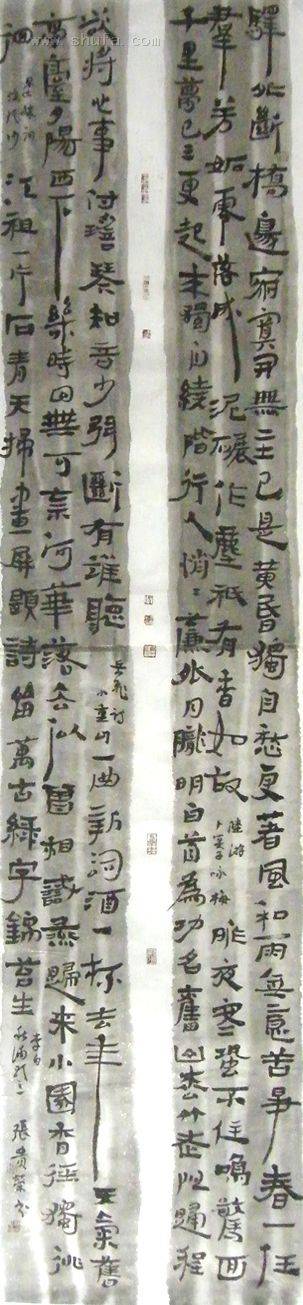 驛外斷橋邊寂寞開無主已是黃昏獨自愁更著風和雨無意苦爭春一任
羣芳妬零落成泥碾作塵祇有香如故 陸游 卜算子咏梅 昨夜寒蛩不住鳴驚回
千里夢已三更起来獨自繞階行人悄〻簾外月朧明白首為功名舊山松竹老阻歸程
欲將心事付瑤琴知音少弦斷有誰聽 岳飛詞 小重山 一曲新詞酒一杯去年天氣舊
亭臺夕陽西下幾時回無可奈河華落去似曾相識燕歸來小園香徑獨徘
徊 晏殊詞 浣溪沙 江祖一片石青天掃畫屏題詩留萬古綠字錦苔生 李白 秋浦歌 張貴榮書
www.shufa.com